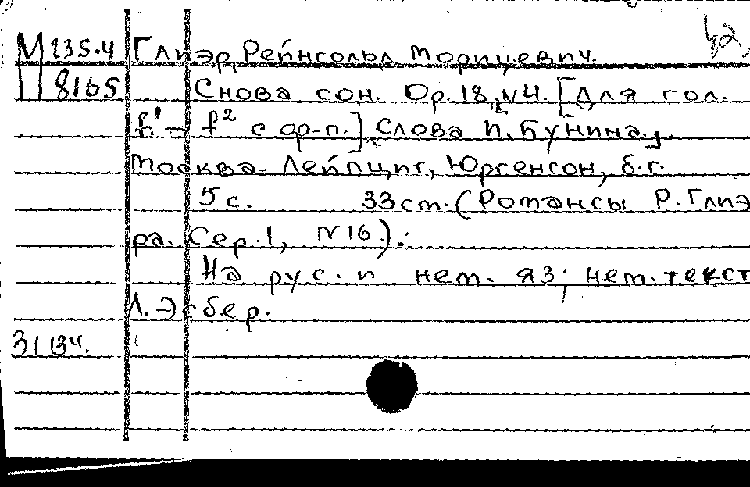 М 235.4 Глиэр, Рейнгольд Морицевич.
П 8165 Снова сон. Op. 18, №4. [Для гол.
f¹ – f² с ф-п.] Слова И. Бунина.
Москва-Лейпциг, Юргенсон, б.г.
5 с. 33 ст. (Романсы Р. Глиэ
ра. Сер. 1, №16).
На рус. и нем. яз; нем. текст
Л. Эсбер.
31134.